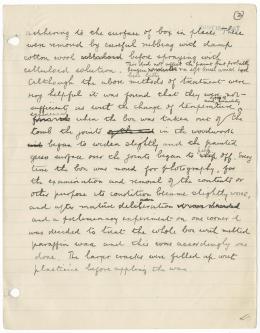 (2)
adhering to the surface of box in places. These
were removed by careful rubbing with damp
cotton wool before spraying with
celluloid solution. This did not affect the paint but probably
Although the above methods of treatment were
very helpful it was found that they were not
sufficient as with the change of temperature
when the box was taken out of the
tomb the joints in the woodwork
began to widen slightly and the painted
gesso surface over the joints began to off. Every
time the box was moved for photography, for
the examination and removal of the contents or
other purpose its condition became slightly worse,
and after mature deliberation
and a preliminary experiment on one corner it
was decided to treat the whole box with melted
paraffin wax and this was accordingly
done. The larger cracks were filled up with
plasticine before applying the wax.